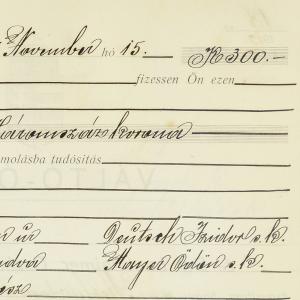 November hó 15. K 300.-
fizessen Ön ezen
Háromszáz korona
molásba tudósítás
n úr Deutsch Izidor s.k.
ndva Mayer Ödön s.k.
ész